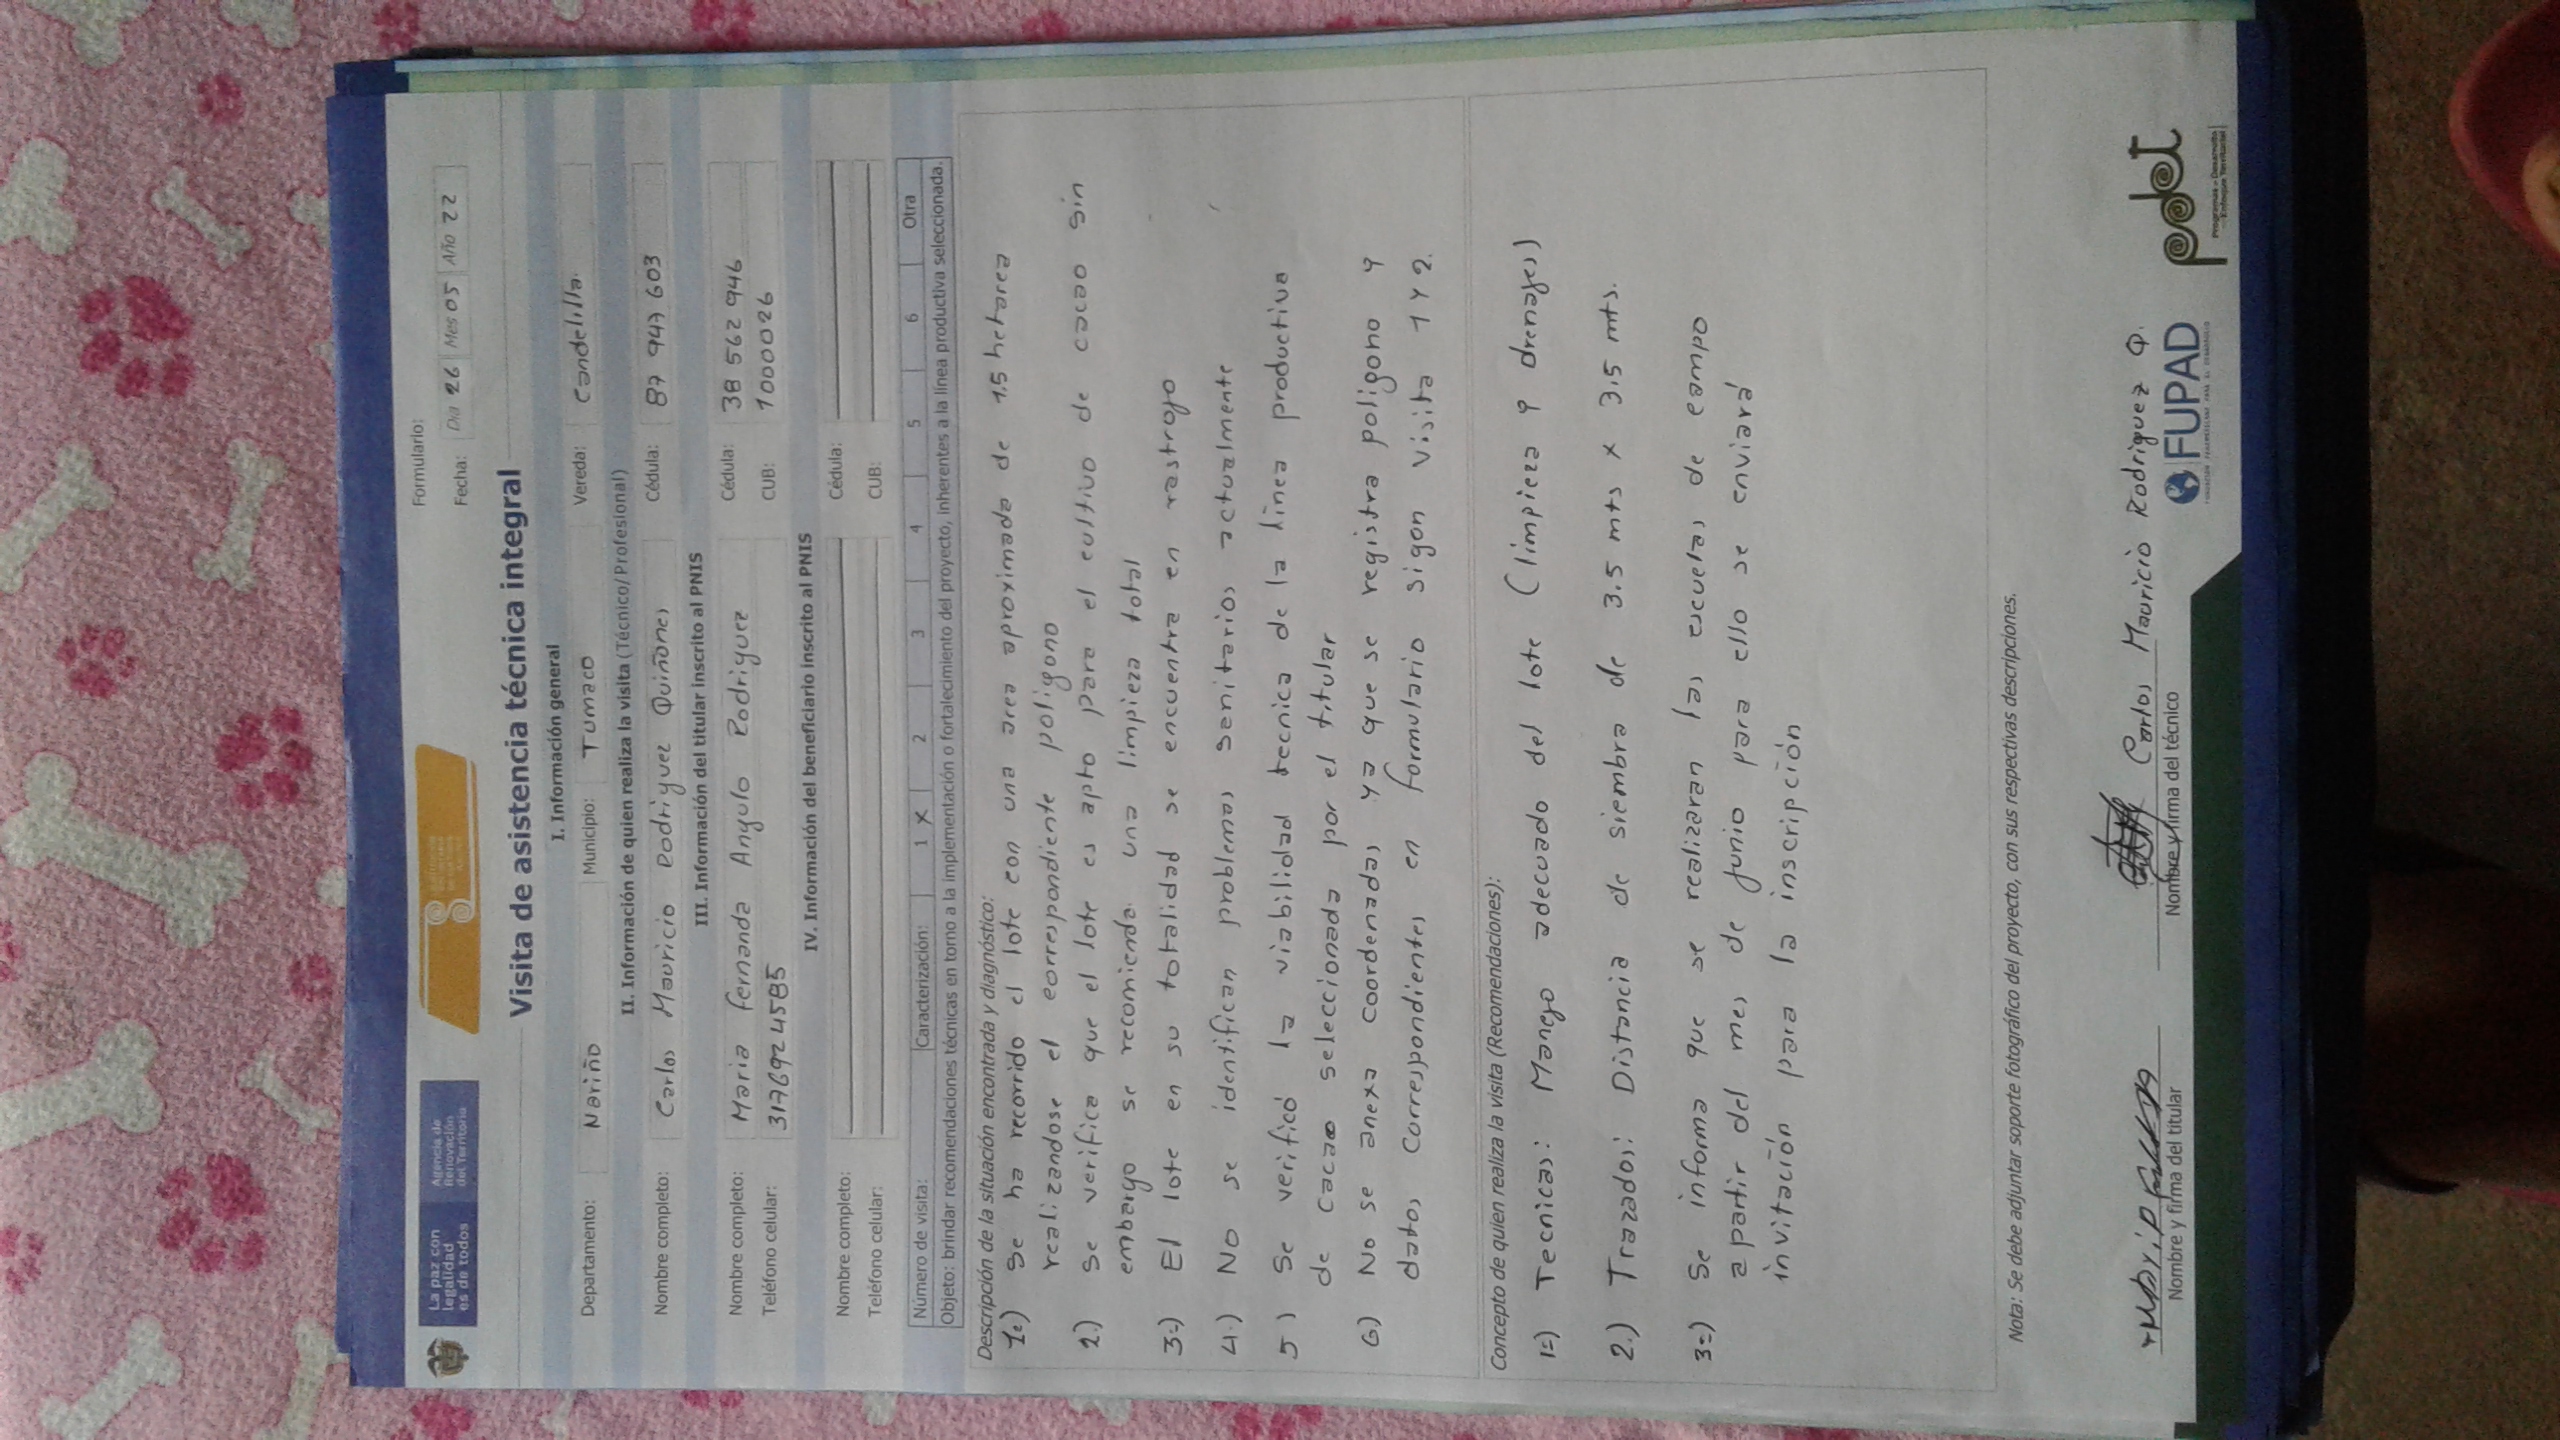 La paz con
legalidad
es de todos
Agencia de
Renovación
del Territorio
Formulario:
Fecha: Día 26 Mes 05 Año 22
Visita de asistencia técnica integral
I. Información general
Departamento: Nariño Municipio: Tumaco Vereda: Candelilla.
II. Información de quien realiza la visita (Técnico/Profesional)
Nombre completo: Carlos Mauricio Rodriguez Quiñones Cédula: 87 947 603
III. Información del titular inscrito al PNIS
Nombre completo: Maria fernanda Angulo Rodriguez Cédula: 38 562 946
Teléfono celular: 3176924585 CUB: 1000026
IV. Información del beneficiario inscrito al PNIS
Nombre completo: Cédula:
Teléfono celular: CUB:
Número de visita: Caracterización: 1 X 2 3 4 5 6 Otra
Objeto: brindar recomendaciones técnicas en torno a la implementación o fortalecimiento del proyecto, inherentes a la línea productiva seleccionada.
Descripción de la situación encontrada y diagnóstico:
1.) Se ha recorrido el lote con una area aproximada de 1.5 hetarea
realizandose el correspondiente poligono
2.) Se verifica que el lote es apto para el cultivo de cacao sin
embargo se recomienda una limpieza total
3.) El lote en su totalidad se encuentra en rastrojo
4.) No se identifican problemas sanitarios actualmente
5) Se verificó la viabilidad tecnica de la linea productiva
de cacao seleccionada por el titular
6) No se anexa coordenadas ya que se registra poligono y
datos correspondientes en formulario sigon visita 1 y 2.
Concepto de quien realiza la visita (Recomendaciones):
1.) Tecnicas: Manejo adecuado del lote (limpieza y drenajes)
2.) Trazados: Distancia de siembra de 3.5 mts x 3.5 mts.
3.) Se informa que se realizaran las escuelas de campo
a partir del mes de junio para ello se enviará
invitación para la inscripción
Nota: Se debe adjuntar soporte fotográfico del proyecto, con sus respectivas descripciones.
Carlos Mauricio Rodriguez Q.
Nombre y firma del titular
Nombre y firma del técnico
FUPAD
pdet
Programas de Desarrollo
con Enfoque Territorial